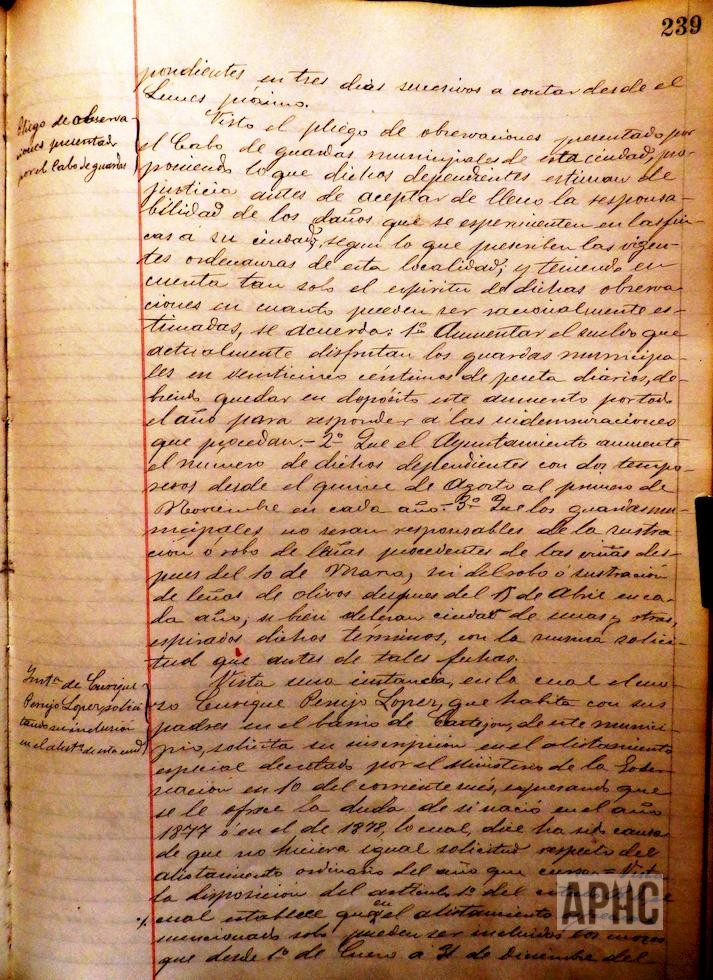 239
pondientes en tres dias sucesivos a contar desde el
Lunes próximo.
Pliego de observa-
ciones presentado
por el Cabo de guardas
Visto el pliego de observaciones presentado por
el Cabo de guardas municipales de esta ciudad, pro-
poniendo lo que dichos dependientes estiman de
justicia antes de aceptar de lleno la responsa-
bilidad de los daños que se esperimenten en las fin-
cas á su cuidado, segun lo que prescriben las vigen-
tes ordenanzas de esta localidad; y teniendo en
cuenta tan solo el espiritu de dichas observa-
ciones en cuanto pueden ser racionalmente es-
timadas, se acuerda: 1º Aumentar el sueldo que
actualmente disfrutan los guardas municipa-
les en veinticinco céntimos de peseta diarios, de-
biendo quedar en depósito este aumento por todo
el año para responder á las indemnizaciones
que procedan.- 2º Que el Ayuntamiento aumente
el número de dichos dependientes con dos tempo-
reros desde el quince de Agosto al primero de
Noviembre en cada año.- 3º Que los guardas mu-
nicipales no seran responsables de la sustra-
ción ó robo de leñas procedentes de las viñas des-
pues del 10 de Marzo, ni del robo ó sustracción
de leñas de olivos despues del 15 de Abril en ca-
da año, si bien deberan cuidar de unas y otras,
espirados dichos términos, con la misma solici-
tud que antes de tales fechas.
Instª de Enrique
Perijo Lopez, solici-
tando su inclusión
en el alistº de esta ciud
Vista una instancia, en la cual el mo-
zo Enrique Perijo Lopez, que habita con sus
padres en el barrio de Castejon, de este munici-
pio, solicita su inscripción en el alistamiento
especial decretado por el Ministerio de la Gober-
nación en 10 del corriente mes, espresando que
se le ofrece la duda de si nació en el año
1877 ó en el de 1878, lo cual, dice ha sido causa
de que no hiciera igual solicitud respecto del
alistamiento ordinario del año que cursa = Vista
la disposición del artículo 1º del
cual establece que en el alistamiento
mencionado solo pueden ser incluidos los mozos
que desde 1º de Enero á 31 de Diciembre del
APHC